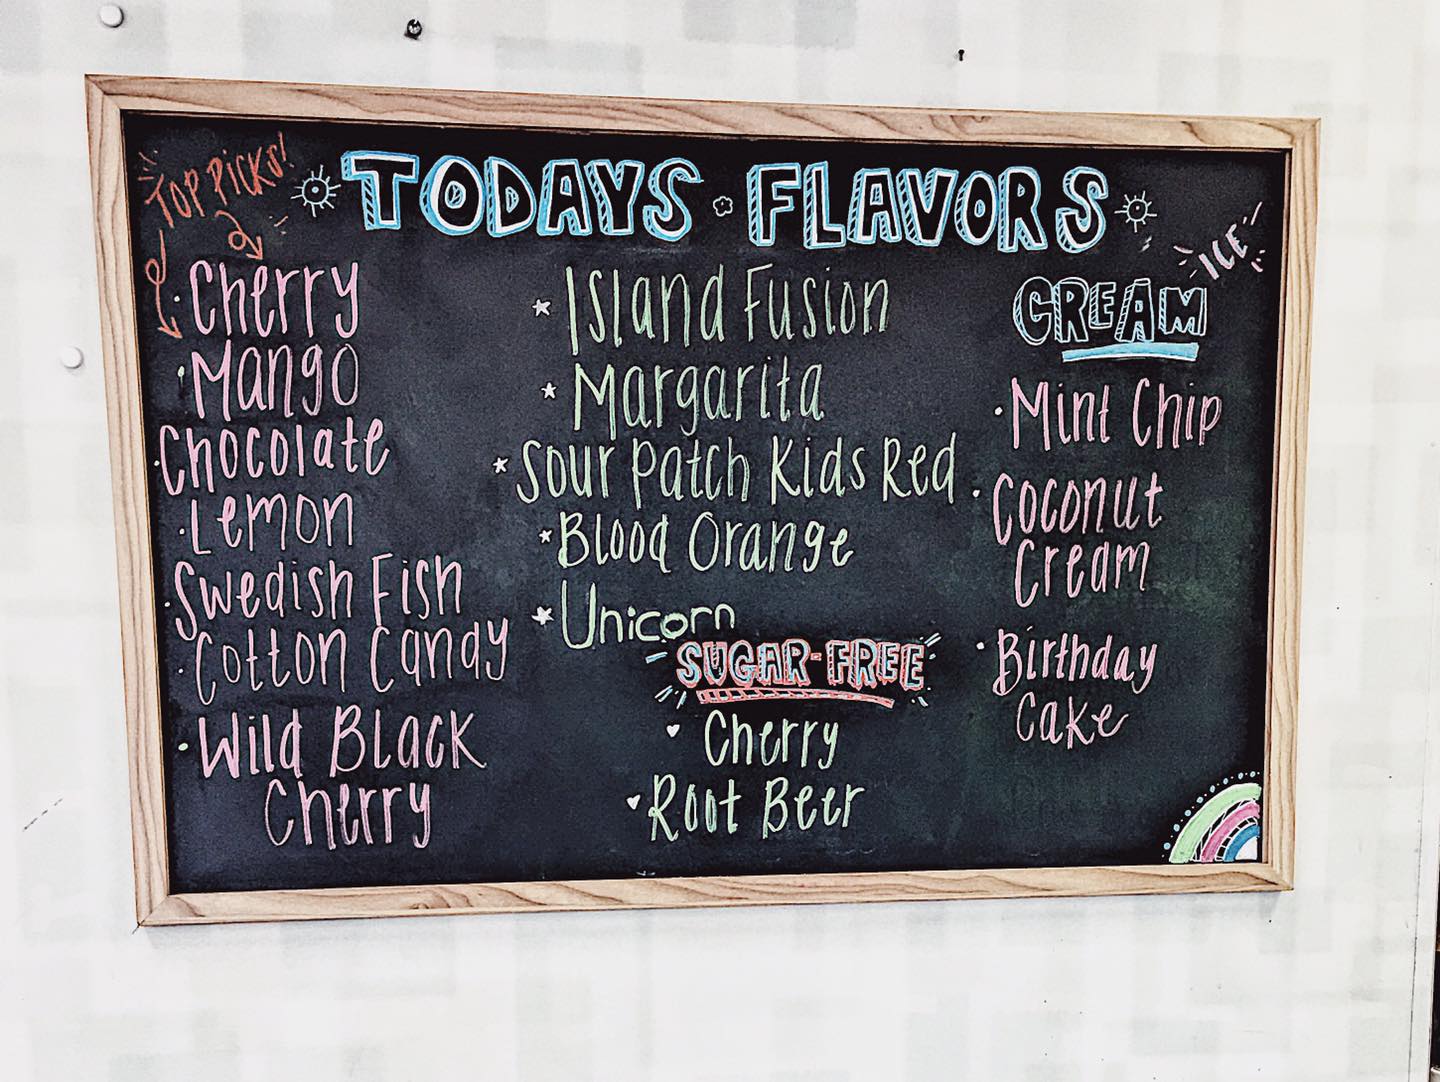 TOP PICKS!
TODAYS FLAVORS
Cherry
Mango
Chocolate
Lemon
Swedish Fish
Cotton Candy
Wild Black
Cherry
Island Fusion
Margarita
Sour Patch Kids Red
Blood Orange
Unicorn
SUGAR-FREE
Cherry
Root Beer
ICE
CREAM
Mint Chip
Coconut
Cream
Birthday
Cake